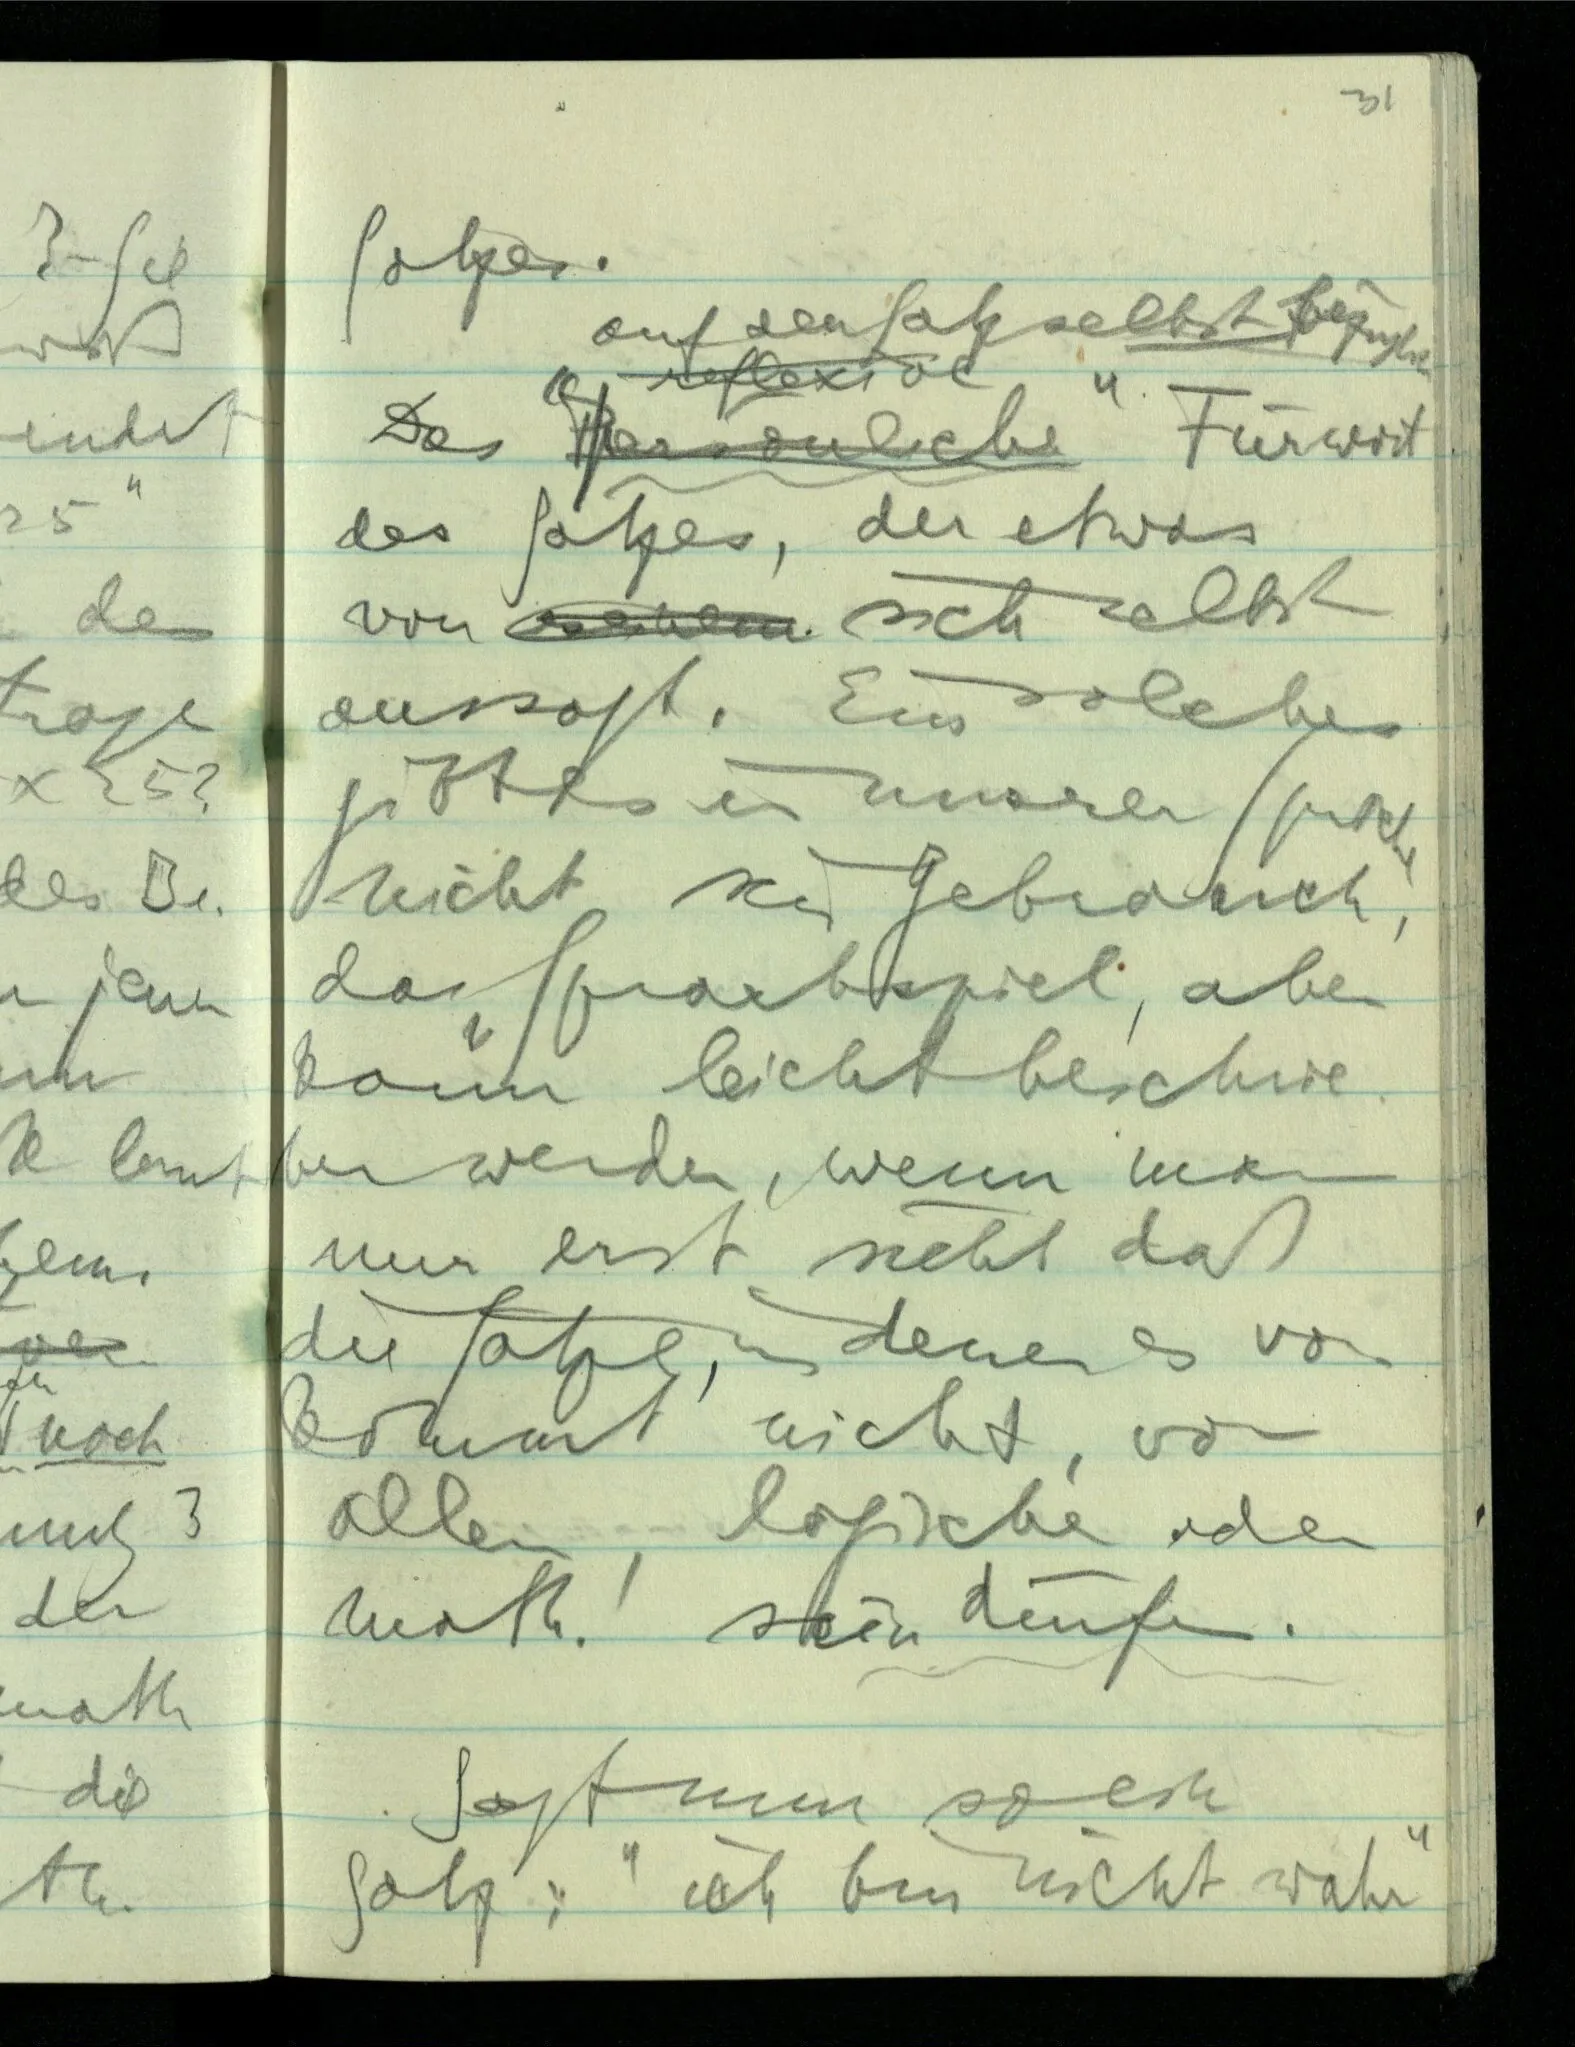 31
Satzes.
auf den Satz selbst bezügliche
reflexive
Das "Persönliche" Fürwort
des Satzes, der etwas
von sich selbst
aussagt. Ein solches
gibt es in unserer Sprache
nicht im Gebrauch,
das Sprachspiel, aber
kann leicht beschrie
ben werden, wenn man
nur erst sieht daß
die Sätze, in denen es vor
kommt nicht, vor
allem, logische oder
math. sein dürfen.
Sagt nun so ein
Satz: "ich bin nicht wahr"
3-Sex
wird
endet
25"
den
trage
x 25?
des Be.
n jener
lernt
noch
ung 3
der
math
die
th.